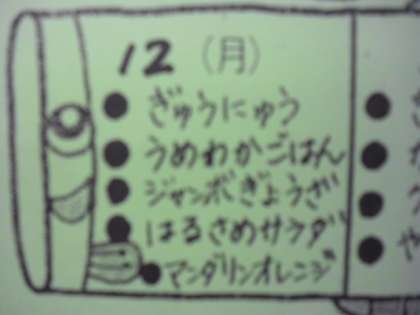 12（月）
●ぎゅうにゅう
●うめわかごはん
●ジャンボぎょうざ
●はるさめサラダ
●マンダリンオレンジ